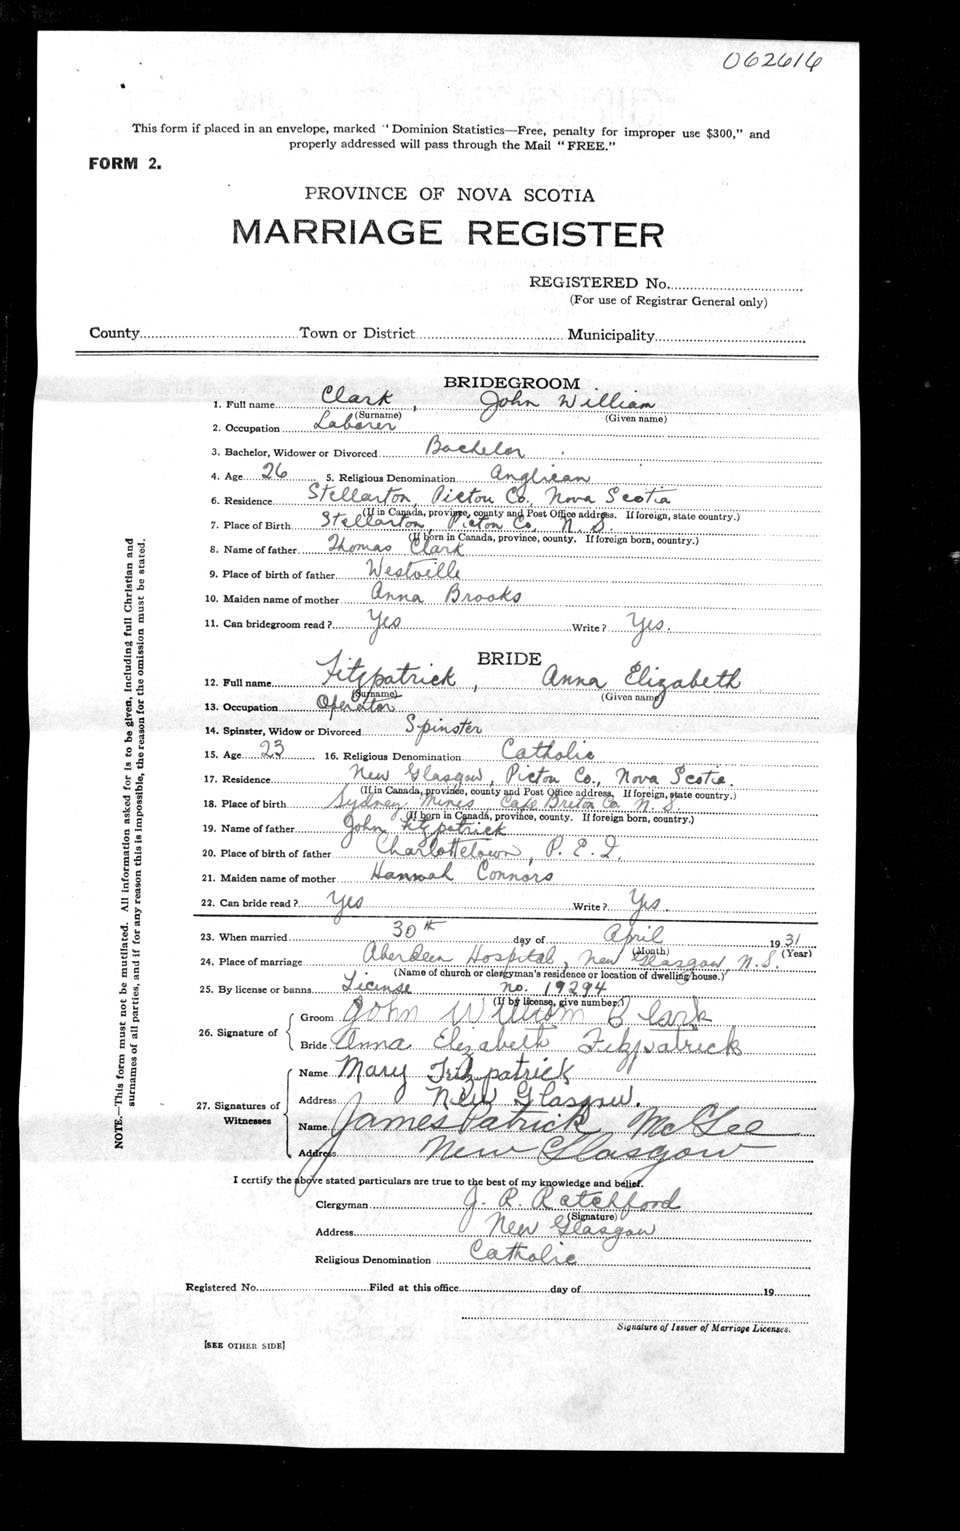 062616
This form if placed in an envelope, marked "Dominion Statistics—Free, penalty for improper use $300," and
properly addressed will pass through the Mail "FREE."
FORM 2.
PROVINCE OF NOVA SCOTIA
MARRIAGE REGISTER
REGISTERED No.
(For use of Registrar General only)
County Town or District Municipality
BRIDEGROOM
1. Full name Clark, John William
(Surname) (Given name)
2. Occupation Laborer
3. Bachelor, Widower or Divorced Bachelor
4. Age 26 5. Religious Denomination Anglican
6. Residence Stellarton, Pictou Co., Nova Scotia
(If in Canada, province, county and Post Office address. If foreign, state country.)
7. Place of Birth Stellarton, Pictou Co., N. S.
(If born in Canada, province, county. If foreign born, country.)
8. Name of father Thomas Clark
9. Place of birth of father Westville
10. Maiden name of mother Anna Brooks
11. Can bridegroom read? Yes Write? Yes.
BRIDE
12. Full name Fitzpatrick, Anna Elizabeth
(Surname) (Given name)
13. Occupation Operator
14. Spinster, Widow or Divorced Spinster
15. Age 23 16. Religious Denomination Catholic
17. Residence New Glasgow, Pictou Co., Nova Scotia.
(If in Canada, province, county and Post Office address. If foreign, state country.)
18. Place of birth Sydney Mines Cape Breton Co. N. S.
(If born in Canada, province, county. If foreign born, country.)
19. Name of father John Fitzpatrick
20. Place of birth of father Charlottetown, P. E. I.
21. Maiden name of mother Hannah Connors
22. Can bride read? Yes Write? Yes.
23. When married 30th day of April 1931
(Month) (Year)
24. Place of marriage Aberdeen Hospital, New Glasgow, N. S.
(Name of church or clergyman's residence or location of dwelling house.)
25. By license or banns License no. 19294
(If by license, give number.)
26. Signature of
Groom John William Clark
Bride Anna Elizabeth Fitzpatrick
27. Signatures of Witnesses
Name Mary Fitzpatrick
Address New Glasgow.
Name James Patrick McGee
Address New Glasgow
I certify the above stated particulars are true to the best of my knowledge and belief.
Clergyman J. R. Ratchford
(Signature)
Address New Glasgow
Religious Denomination Catholic
Registered No. Filed at this office day of 19
Signature of Issuer of Marriage Licenses.
[SEE OTHER SIDE]
NOTE.—This form must not be mutilated. All information asked for is to be given, including full Christian and
surnames of all parties, and if for any reason this is impossible, the reason for the omission must be stated.